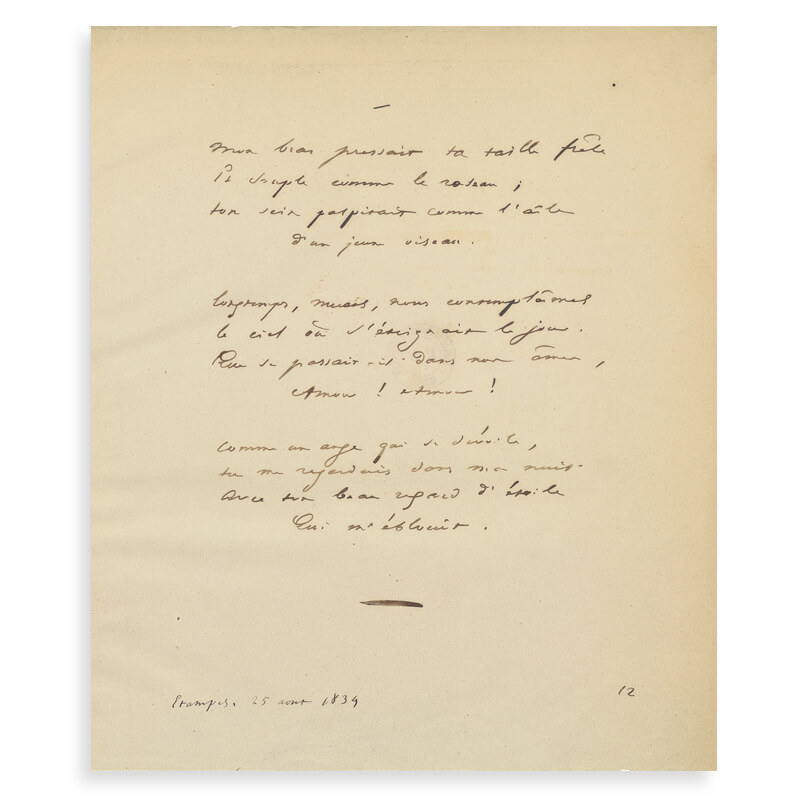 Mon bras pressait ta taille frêle
Et souple comme le roseau ;
ton sein palpitait comme l'aîle
d'un jeune oiseau.
longtemps, muets, nous contemplâmes
le ciel où s'éteignait le jour.
Que se passait-il dans nos âmes,
Amour ! Amour !
Comme un ange qui se dévoile,
tu me regardais dans ma nuit
Avec ton beau regard d'étoile
Qui m'éblouit.
Etampes. 25 aout 1834
12